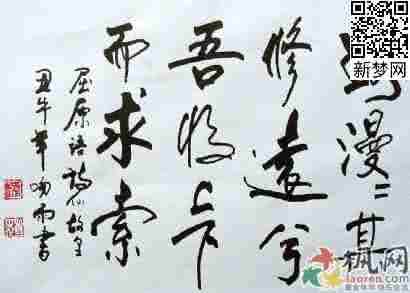 路漫々其
修遠兮
吾将上下
而求索
屈原語
丑牛年
雨書
新梦网
枫网
laoren.com